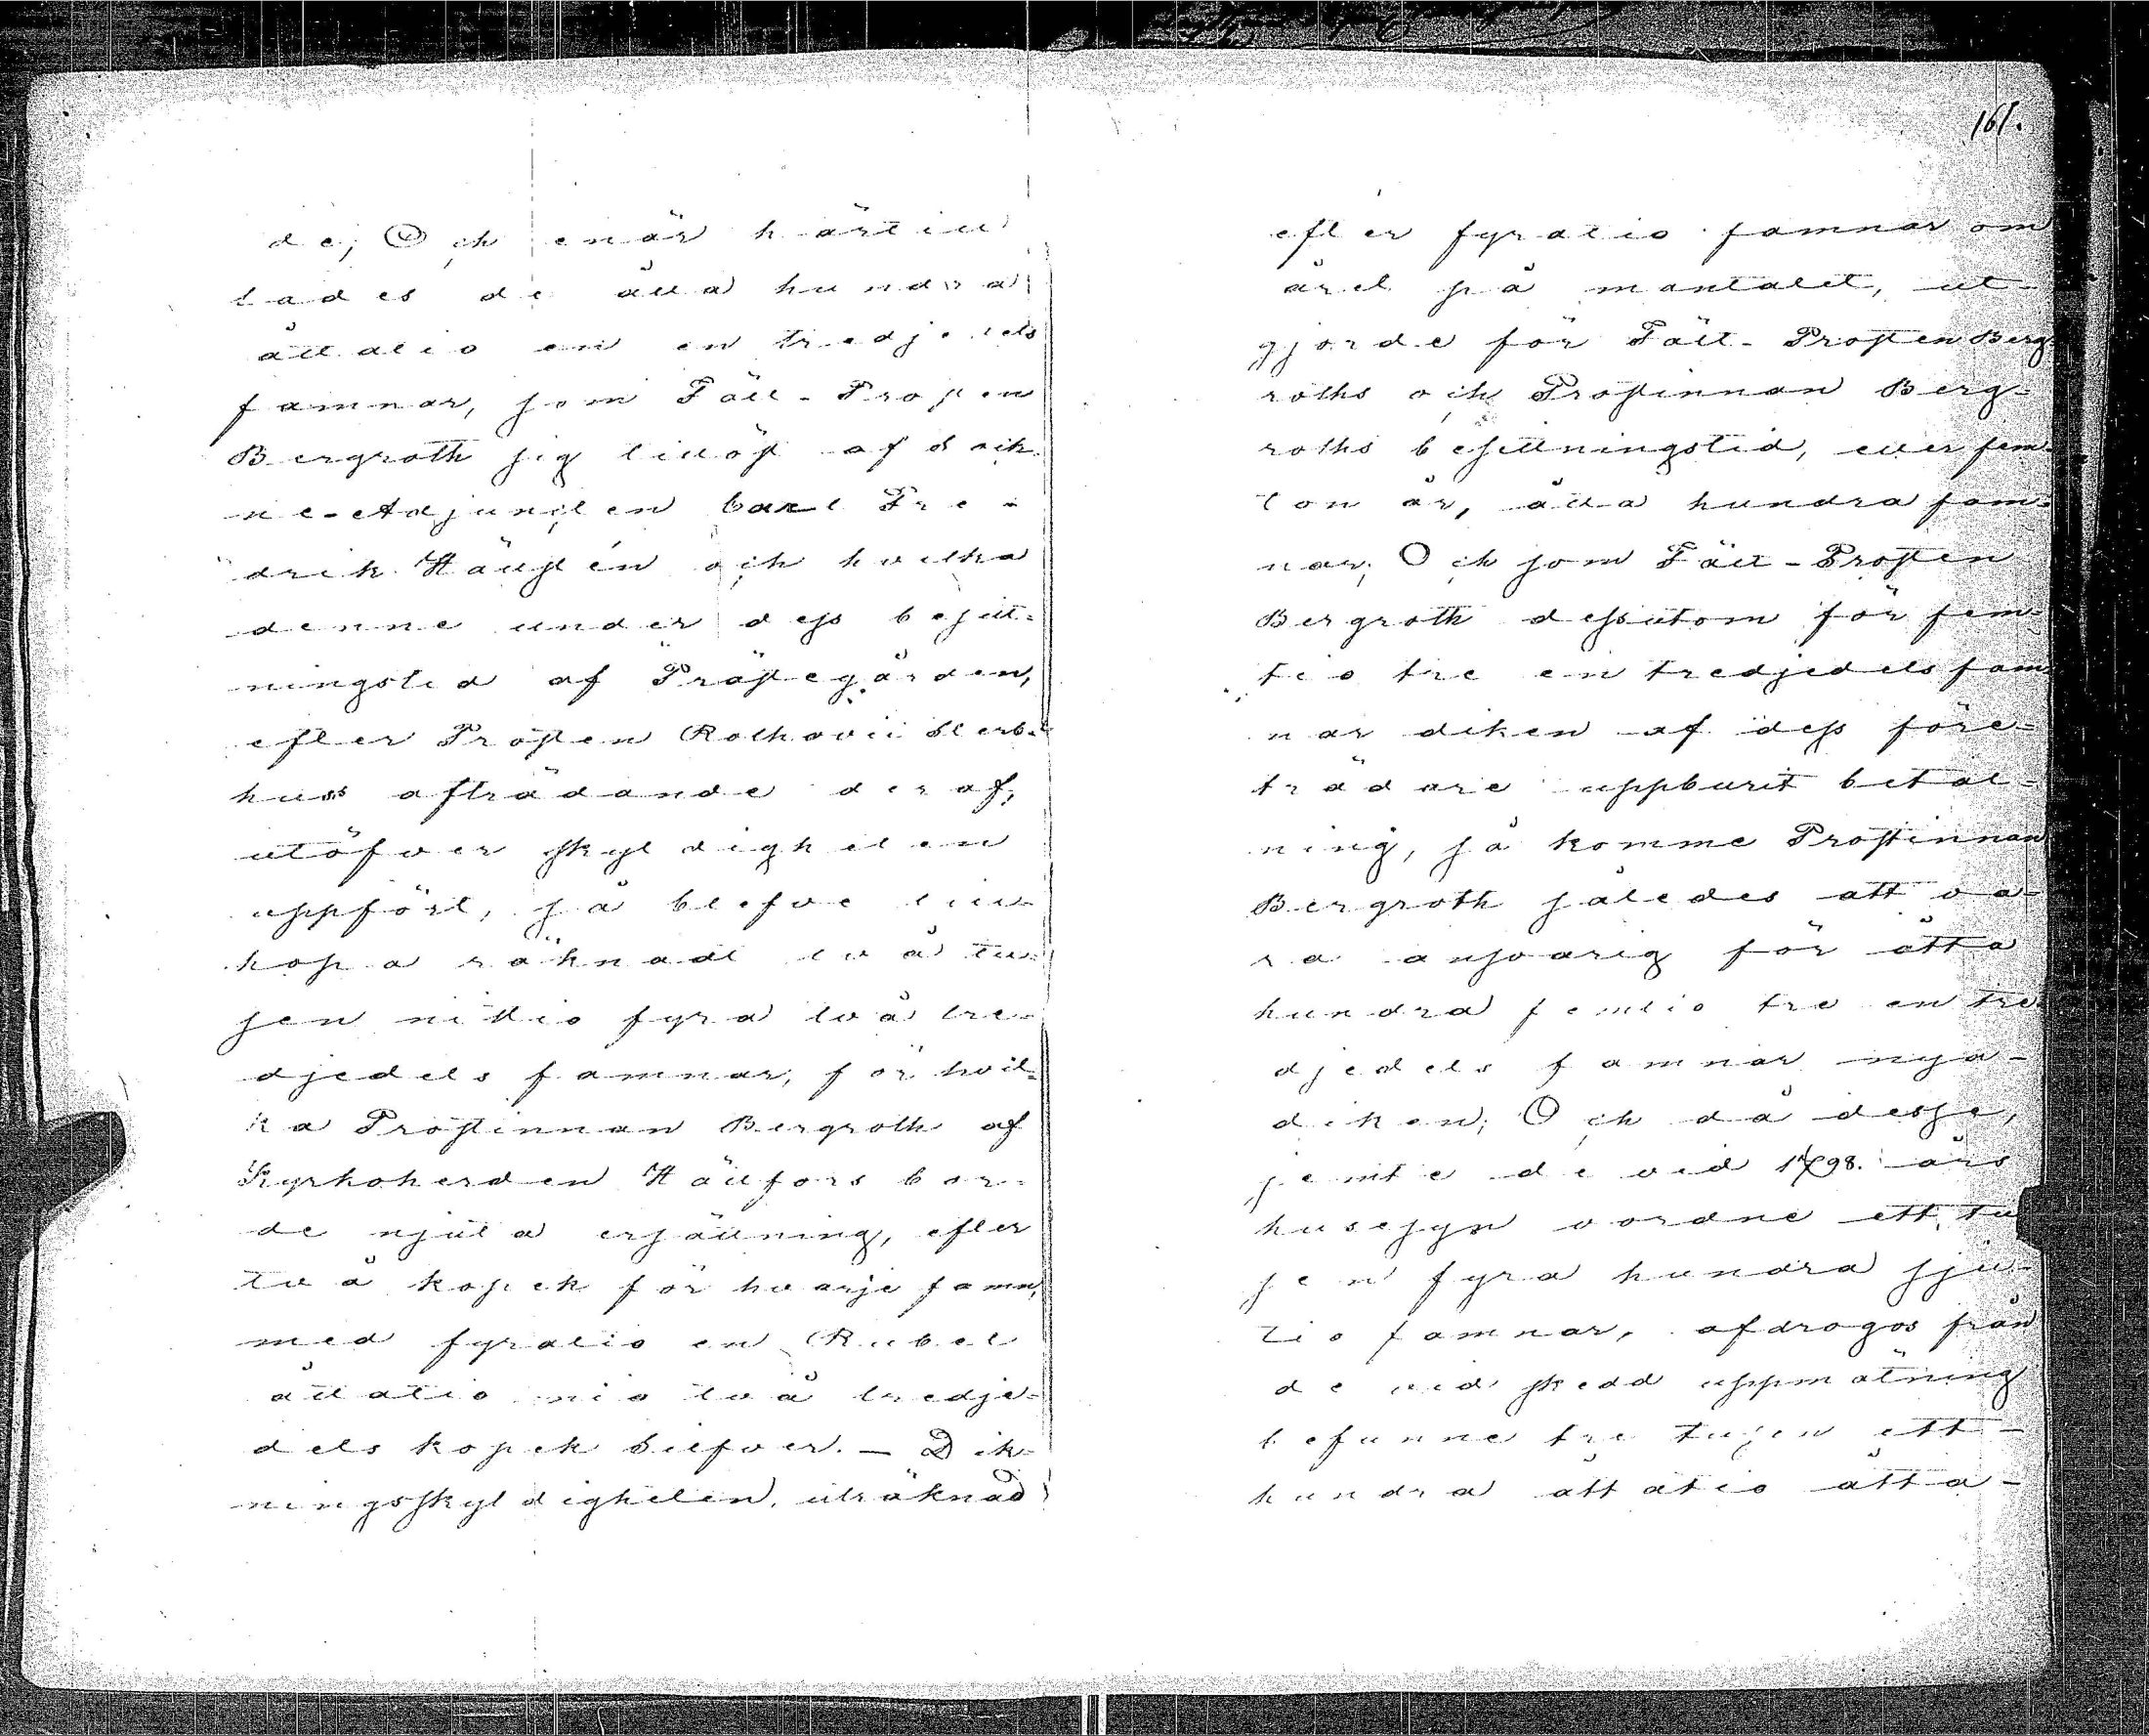 de; Och enär härtill
lades de åtta hundra
åttatio en en tredjedels
famnar, som Fält-Prosten
Bergroth sig tillöst af Sock-
ne-Adjuncten Carl Fre-
drik Hällstén och hvilka
denne under dess besitt-
ningstid af Prästegården,
efter Prosten Rothovii Sterb-
huss afträdande deraf,
utöfver skyldigheten
uppfört, så blefve till-
hopa räknadt två tu-
sen nittio fyra två tre-
djedels famnar, för hvil-
ka Prostinnan Bergroth af
Kyrkoherden Hällfors bor-
de njuta ersättning, efter
två kopek för hvarje famn,
med fyratio en Rubel
åttatio nio två tredje-
dels kopek Silfver. — Dik-
ningsskyldigheten, uträknad
161.
efter fyratio famnar om
året på mantalet, ut-
gjorde för Fält-Prosten Berg-
roths och Prostinnan Berg-
roths besittningstid, eller fem-
ton år, åtta hundra fam-
nar; Och som Fält-Prosten
Bergroth dessutom för fem-
tio tre en tredjedels fam-
nar diken af dess före-
trädare uppburit betal-
ning, så komme Prostinnan
Bergroth således att va-
ra ansvarig för åtta
hundra femtio tre en tre-
djedels famnar nya-
diken; Och då desse,
jemte de vid 1798. års
husesyn vordne ett tu-
sen fyra hundra sju-
tio famnar, afdrogos från
de vid skedd uppmätning
befunne tre tusen ett-
hundra åttatio åtta-